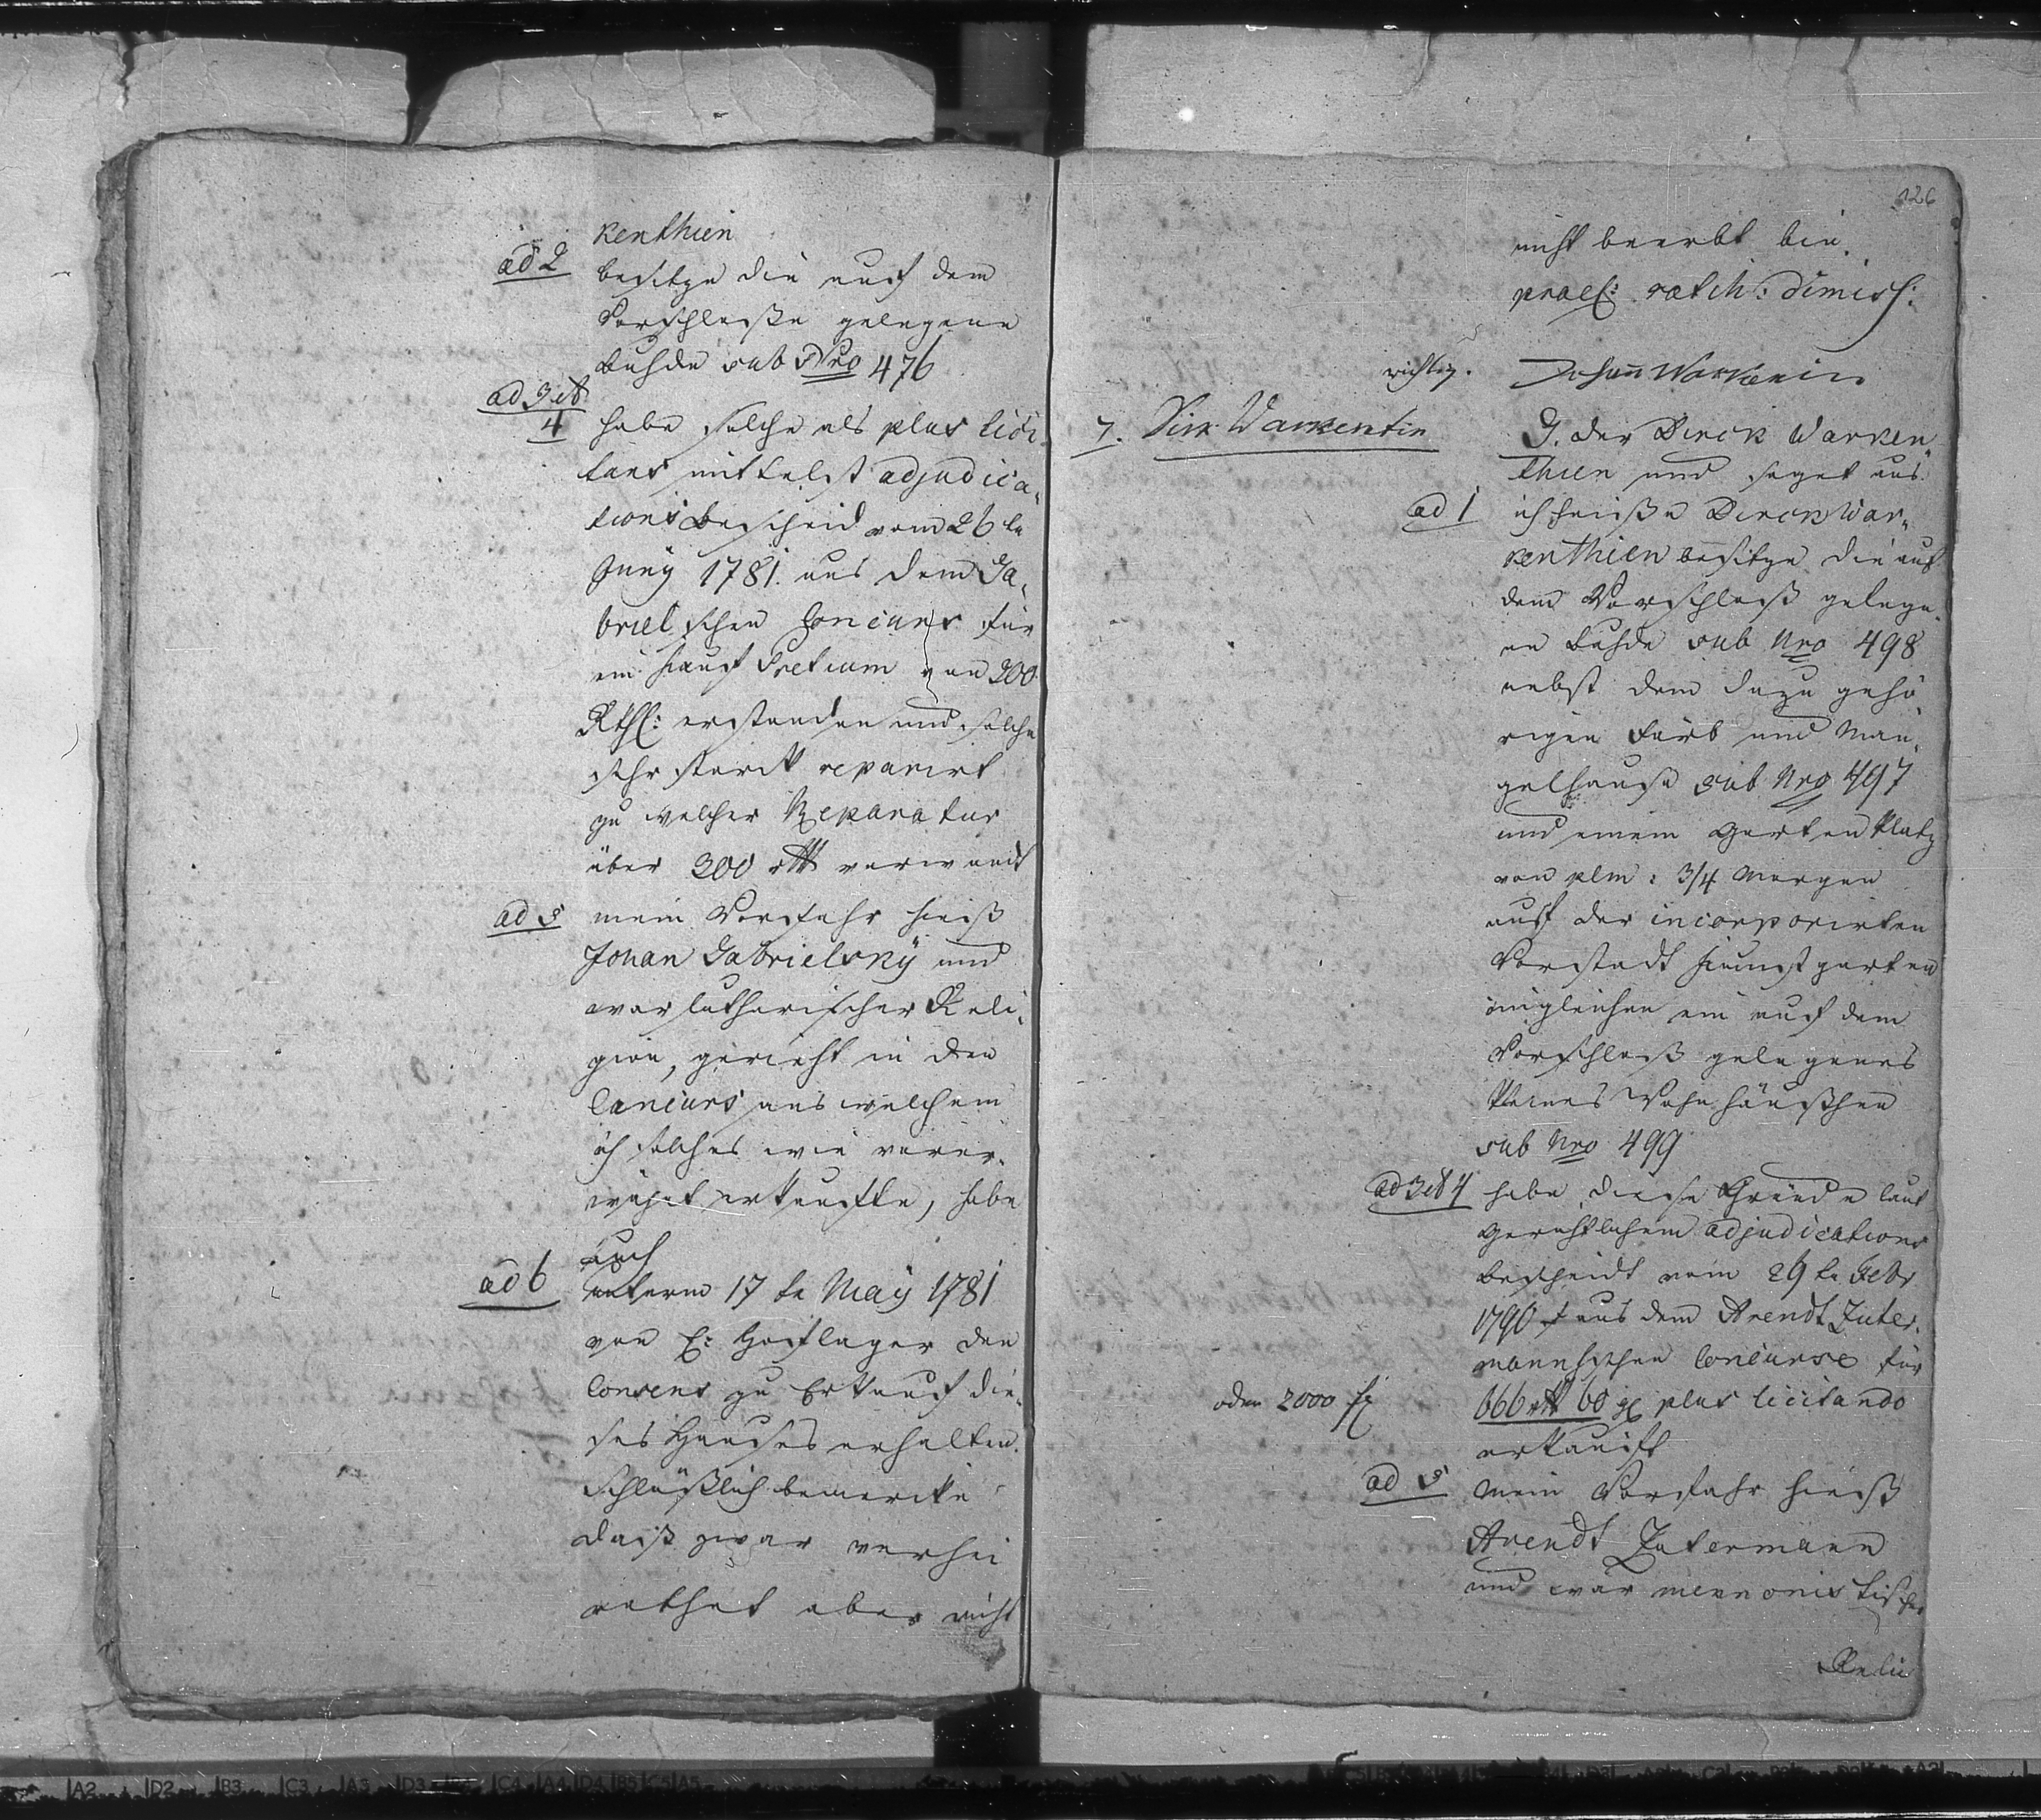 kenthien
ad 2
besitze die auf dem
Vorschlosse gelegene
Buhde sub Nro 476
ad 3 et
4
habe solche als plus lici¬
tans mittelst adjudica¬
tions Bescheid vom 26 te
Juny 1781. aus dem Ga¬
brielschen Concurs für
ein Kauf Pretium von 300
Rthl: erstanden und solche
sehr starck reparirt
zu welcher Reparatur
über 300 rtl verwandt
ad 5
mein Vorfahr hieß
Johan Gabrielsky und
war lutherischer Reli¬
gion, gerieht in den
Concurs aus welchem
ich solches wie vorer¬
wähnt erkaufte, habe
auch
ad 6
unterm 17 te May 1781
von E: Hoflager den
Consens zu Erkauf die¬
ses Hauses erhalten.
Schlüßlich bemercke
daß zwar verhei
rathet aber nicht
126
nicht beerbt bin.
prael: ratih: dimiss:
richtig.
Johann Warkenin
7. Dirk Warkentin
G. der Dirck Warken
thien und saget aus
ad 1
ich heiße Dirck War¬
kenthien besitze die auf
dem Vorschloß gelege¬
ne Buhde sub Nro 498
nebst dem dazu gehö
rigen Färb und Man¬
gelhause sub Nro 497
und einem Garten Platz
von plm: 3/4 Morgen
auf der incorporirten
Vorstadt Kunstgarten
imgleichen ein auf dem
Vorschloß gelegenes
kleines Wohn häußchen
sub Nro 499
ad 3 et 4
habe diese Gründe laut
Gerichtlichem adjudications
bescheidt vom 29 te Febr
1790 aus dem Arendt Zuter¬
mannschen Concurse für
oder 2000 fl
666 rtl 60 gl plus licitando
erkauft
ad 5
Mein Vorfahr hieß
Arendt Zutermann
und war mennonistischer
Reli